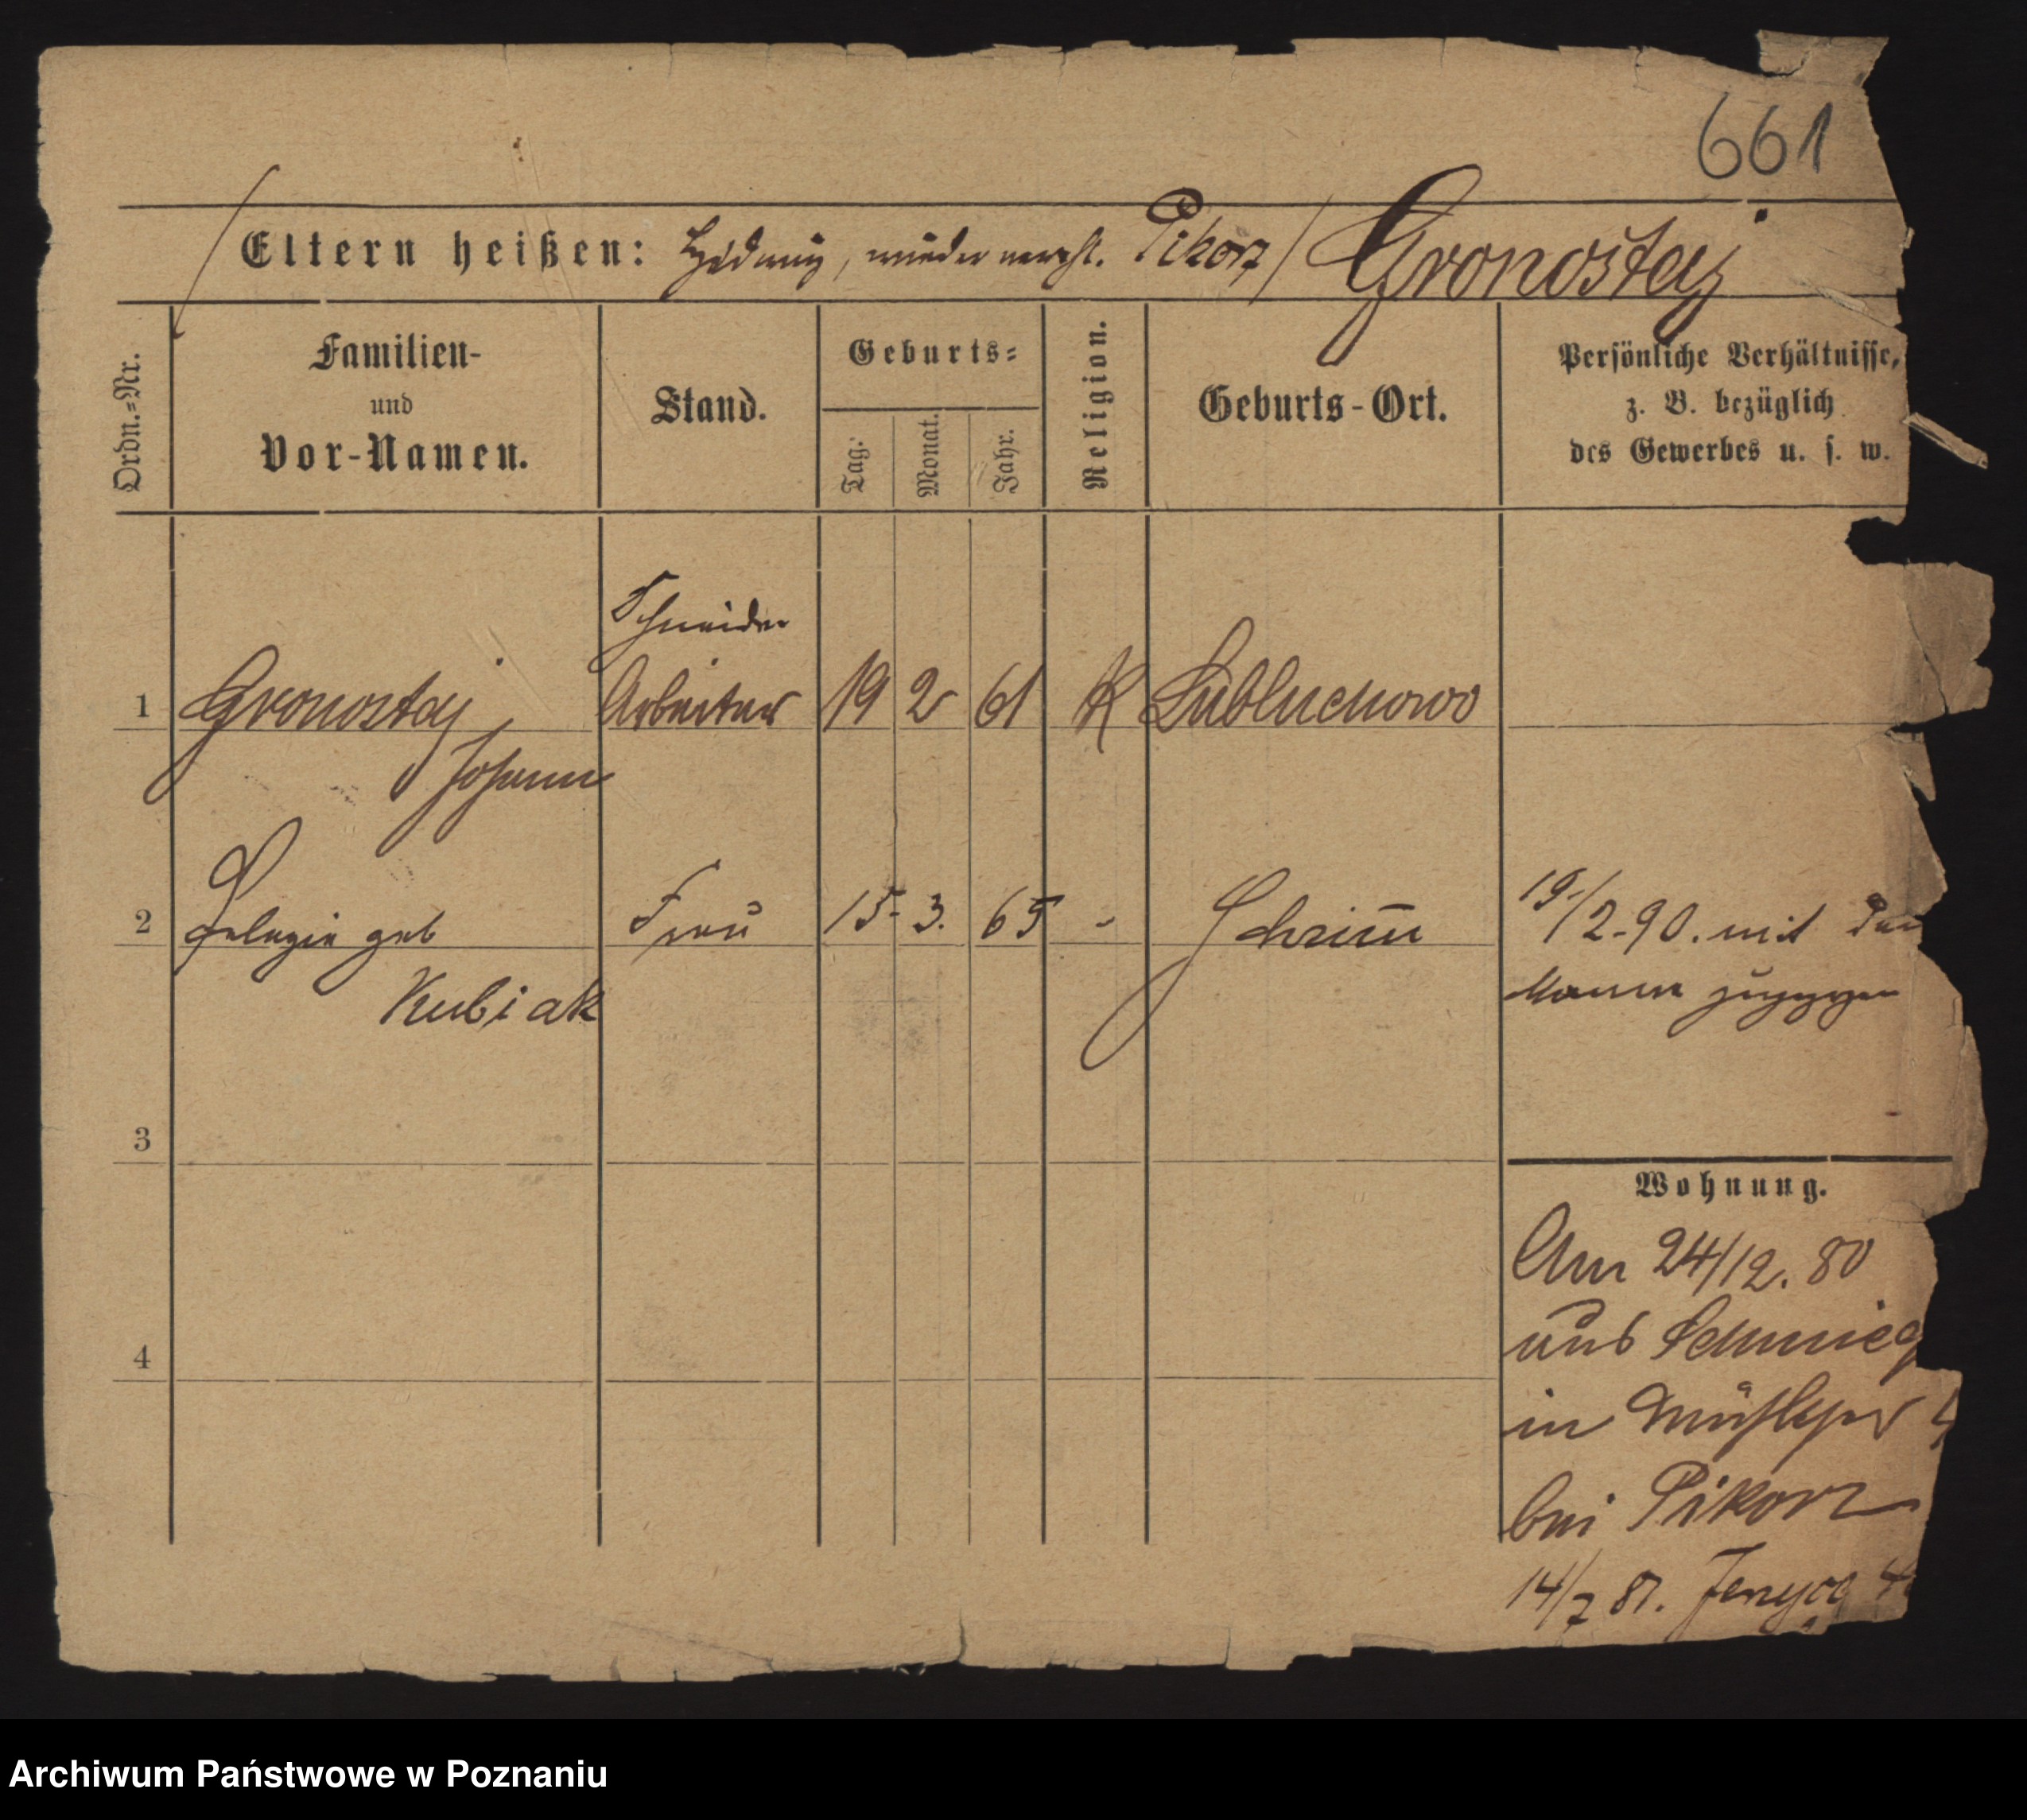 661
Eltern heißen: Hedwig, wieder verehl. Pikorz / Gronostaj
Ordn.-Nr.
Familien- und Vor-Namen.
Stand.
Geburts-
Tag.
Monat.
Jahr.
Religion.
Geburts-Ort.
Persönliche Verhältnisse,
z. B. bezüglich
des Gewerbes u. s. w.
Schneider
1 Gronostaj, Arbeiter 19 2 61 K
Johann
2 Pelagia geb Frau 15. 3. 65 " Schrim̄ 19/2.90. mit dem
Kubiak Manne zugezogen
3
Wohnung.
Am 24/12. 80
4 aus Schmieg
in
bei Pikorz
14/7 81.
Archiwum Państwowe w Poznaniu